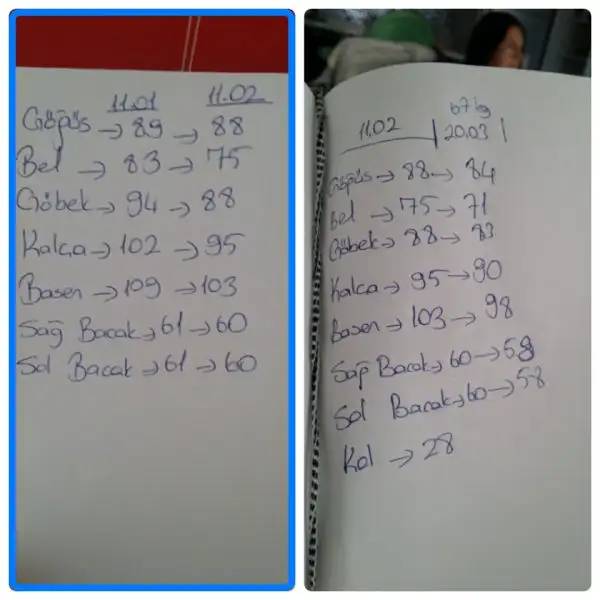 11.01 11.02
Göğüs → 89 → 88
Bel → 83 → 75
Göbek → 94 → 88
Kalça → 102 → 95
Basen → 109 → 103
Sağ Bacak → 61 → 60
Sol Bacak → 61 → 60
67 kg
11.02 | 20.03 |
Göğüs → 88 → 84
Bel → 75 → 71
Göbek → 88 → 83
Kalça → 95 → 90
Basen → 103 → 98
Sağ Bacak → 60 → 58
Sol Bacak → 60 → 58
Kol → 28